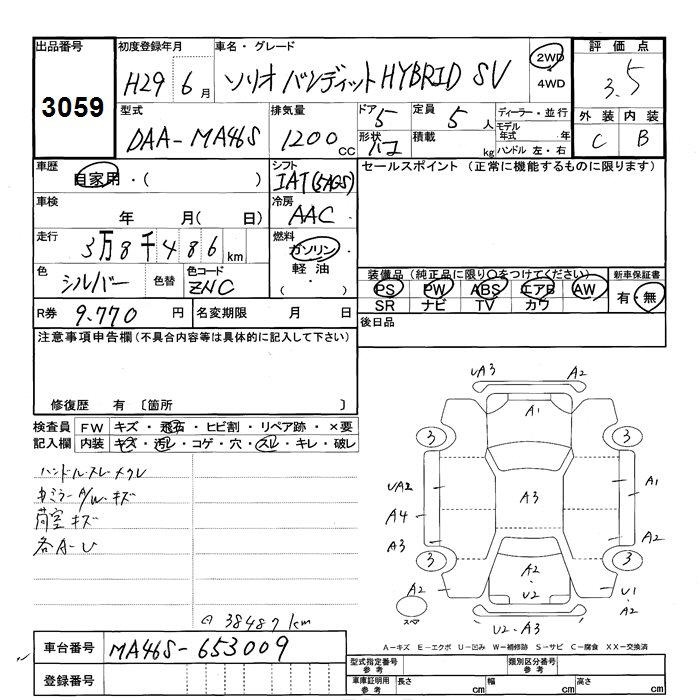 出品番号
3059
初度登録年月
H29 6月
車名・グレード
ソリオ バンディット HYBRID SV
2WD
4WD
評価点
3.5
外装 内装
C B
型式
DAA-MA46S
排気量
1200cc
ドア 5
形状
定員 5人
積載 kg
ディーラー・並行
モデル年式 年
ハンドル 左・右
車歴
自家用・( )
シフト
IAT(5AGS)
セールスポイント (正常に機能するものに限ります)
車検
年 月( 日)
冷房
AAC
走行
3万8千486km
燃料
ガソリン
軽油
( )
色
シルバー
色替
色コード
ZNC
装備品 (純正品に限り○をつけてください)
PS PW ABS エアB AW
SR ナビ TV カワ
新車保証書
有・無
R券 9.770円
名変期限 月 日
後日品
注意事項申告欄 (不具合内容等は具体的に記入して下さい)
修復歴 有 〔箇所 〕
検査員 FW キズ・飛石・ヒビ割・リペア跡・×要
記入欄 内装 キズ・汚レ・コゲ・穴・スレ・キレ・破レ
ハンドル・スレ・メクレ
A/W・キズ
荷室キズ
各A-U
38487km
UA3 A2
A1
3 3
UA2 A3 A1
A4
A3 A2
3 3
A2 A2 U1
U2 A2
スペア
U2・A3
A-キズ E-エクボ U-凹み W-補修跡 S-サビ C-腐食 XX-交換済
車台番号 MA46S-653009
登録番号
型式指定番号 参考
類別区分番号 参考
車庫証明用 参考 長さ cm 幅 cm 高さ cm